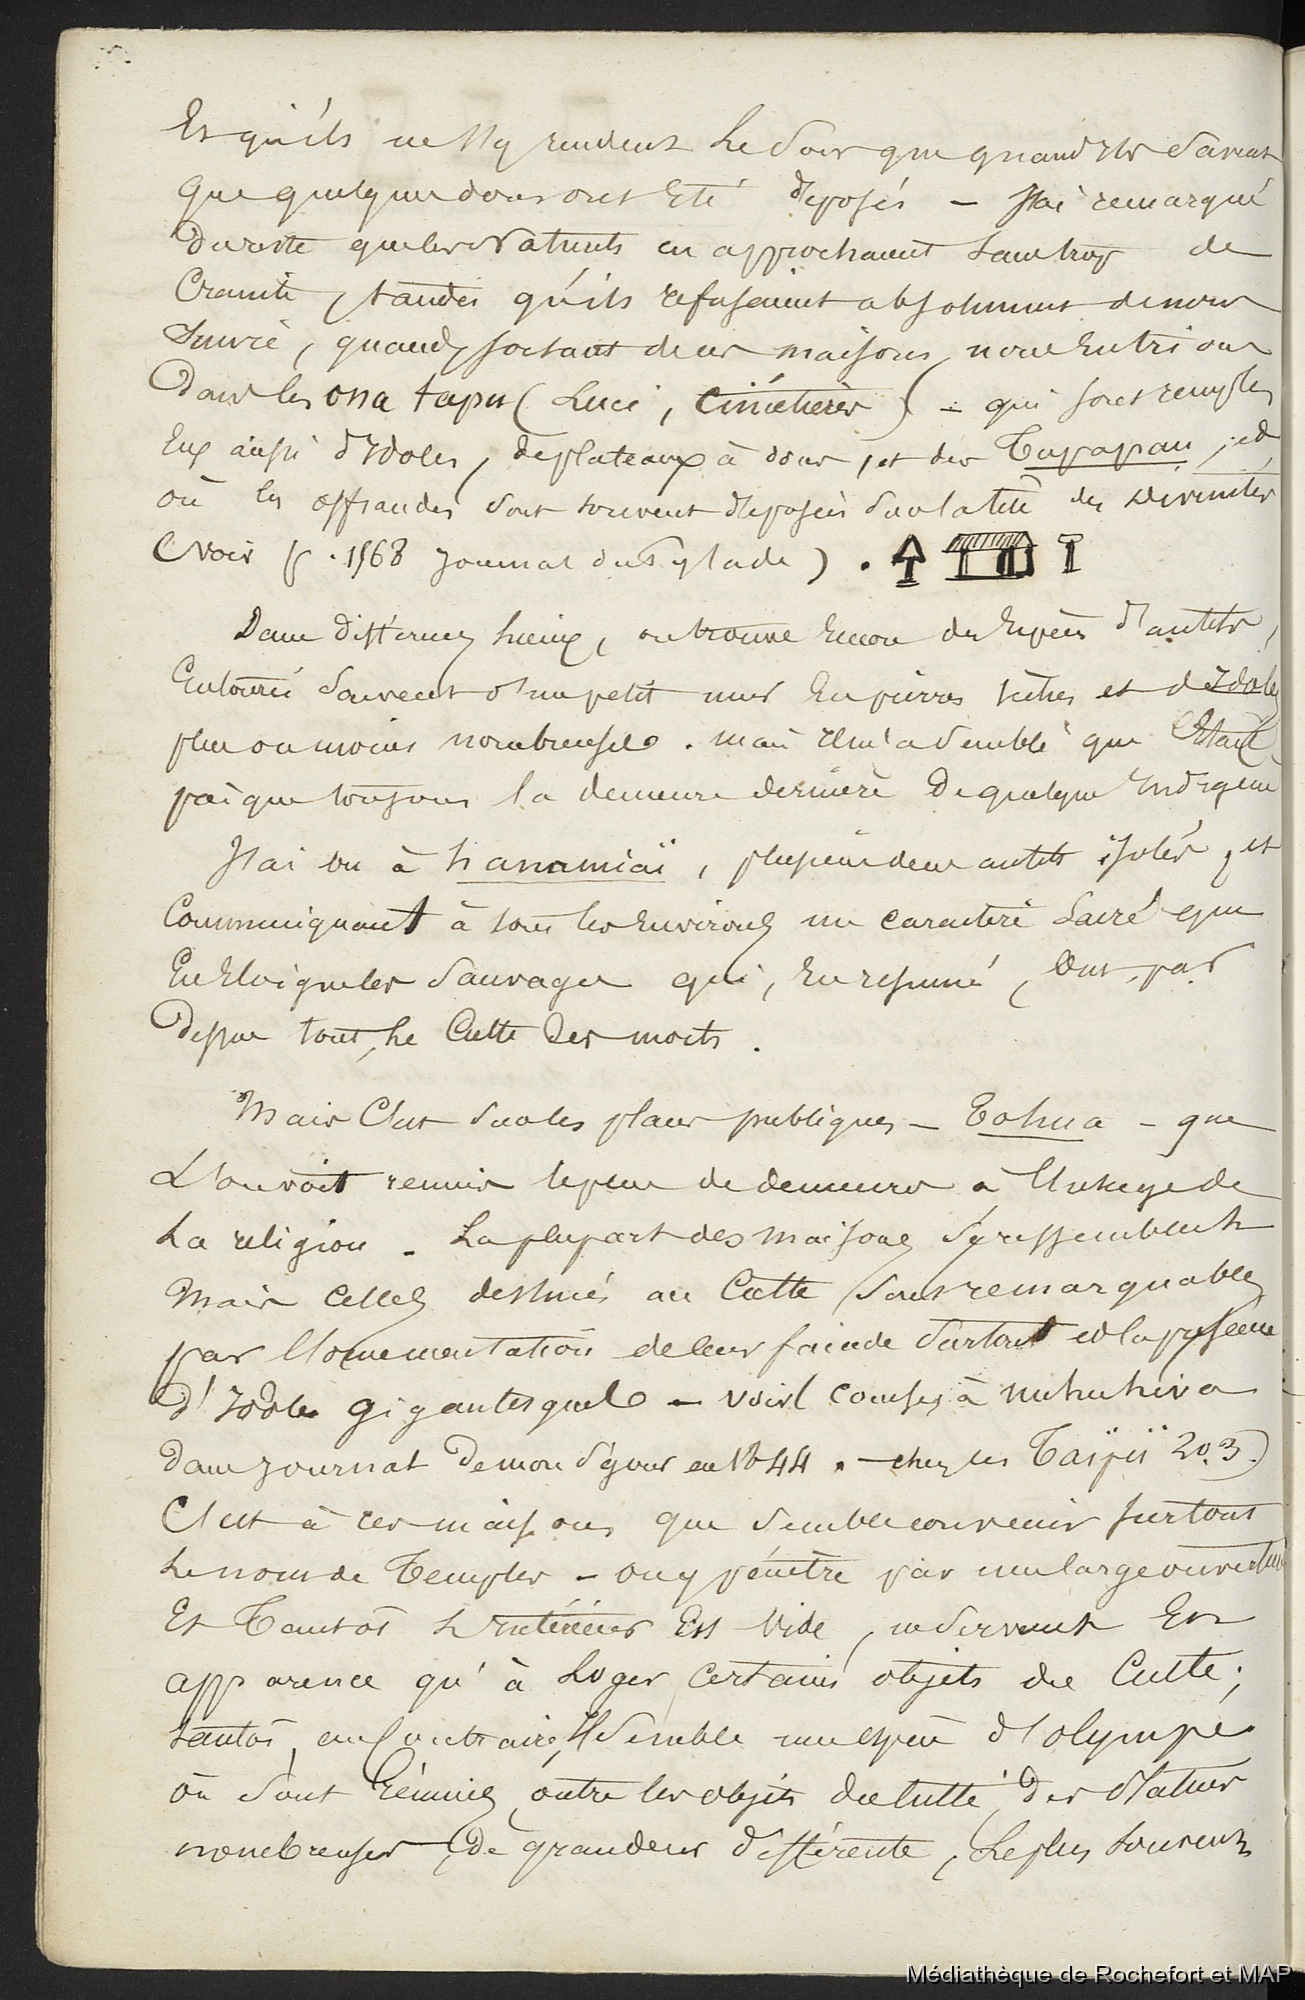 Et qu'ils ne s'y rendent le soir que quand ils savent
que quelques dons ont été déposés — J'ai remarqué
du reste que les Naturels en approchaient sans trop de
Crainte, tandis qu'ils refusaient absolument de nous
suivre, quand, sortant de ces maisons, nous entrions
Dans les oua tapu (Lieux, Cimetières) — qui sont remplis
Eux aussi d'Idoles, de plateaux à dons, et des Tupapau, et
où les offrandes sont souvent déposées sur la tête des Divinités
(voir p. 1568 journal du Pylade).
Dans différens lieux, on trouve encore des Espèces d'autels,
Entourés souvent d'un petit mur en pierres sèches et d'Idoles
plus ou moins nombreuses. Mais il m'a semblé que c'était
presque toujours la demeure dernière de quelque Indigène
J'ai vu à hanamiaï, plusieurs de ces autels isolés, et
Communiquant à tous les environs un caractère sacré qui
En éloigne les sauvages qui, En résumé, ont par
dessus tout, le Culte des morts.
Mais C'est sur les places publiques — Tohua — que
L'on voit réunies le plus de demeures à l'usage de
La religion — La plupart des maisons s'y ressemblent
Mais Celles destinées au Culte sont remarquables
par l'ornementation de leur façade surtout et la présence
d'Idoles gigantesques — voir courses à nuhuhiva
Dans journal de mon séjour en 1844. — chez les Taïpiï 203.)
C'est à ces maisons que semble convenir surtout
Le nom de Temples — on y pénètre par une large ouverture
Et Tantôt L'Intérieur Est Vide, ne servant En
apparence qu'à Loger certains objets du Culte;
tantôt, au contraire, Il semble une espèce d'olympe
où sont réunies, outre les objets du culte, des statues
nombreuses, de grandeur différente, Le plus souvent